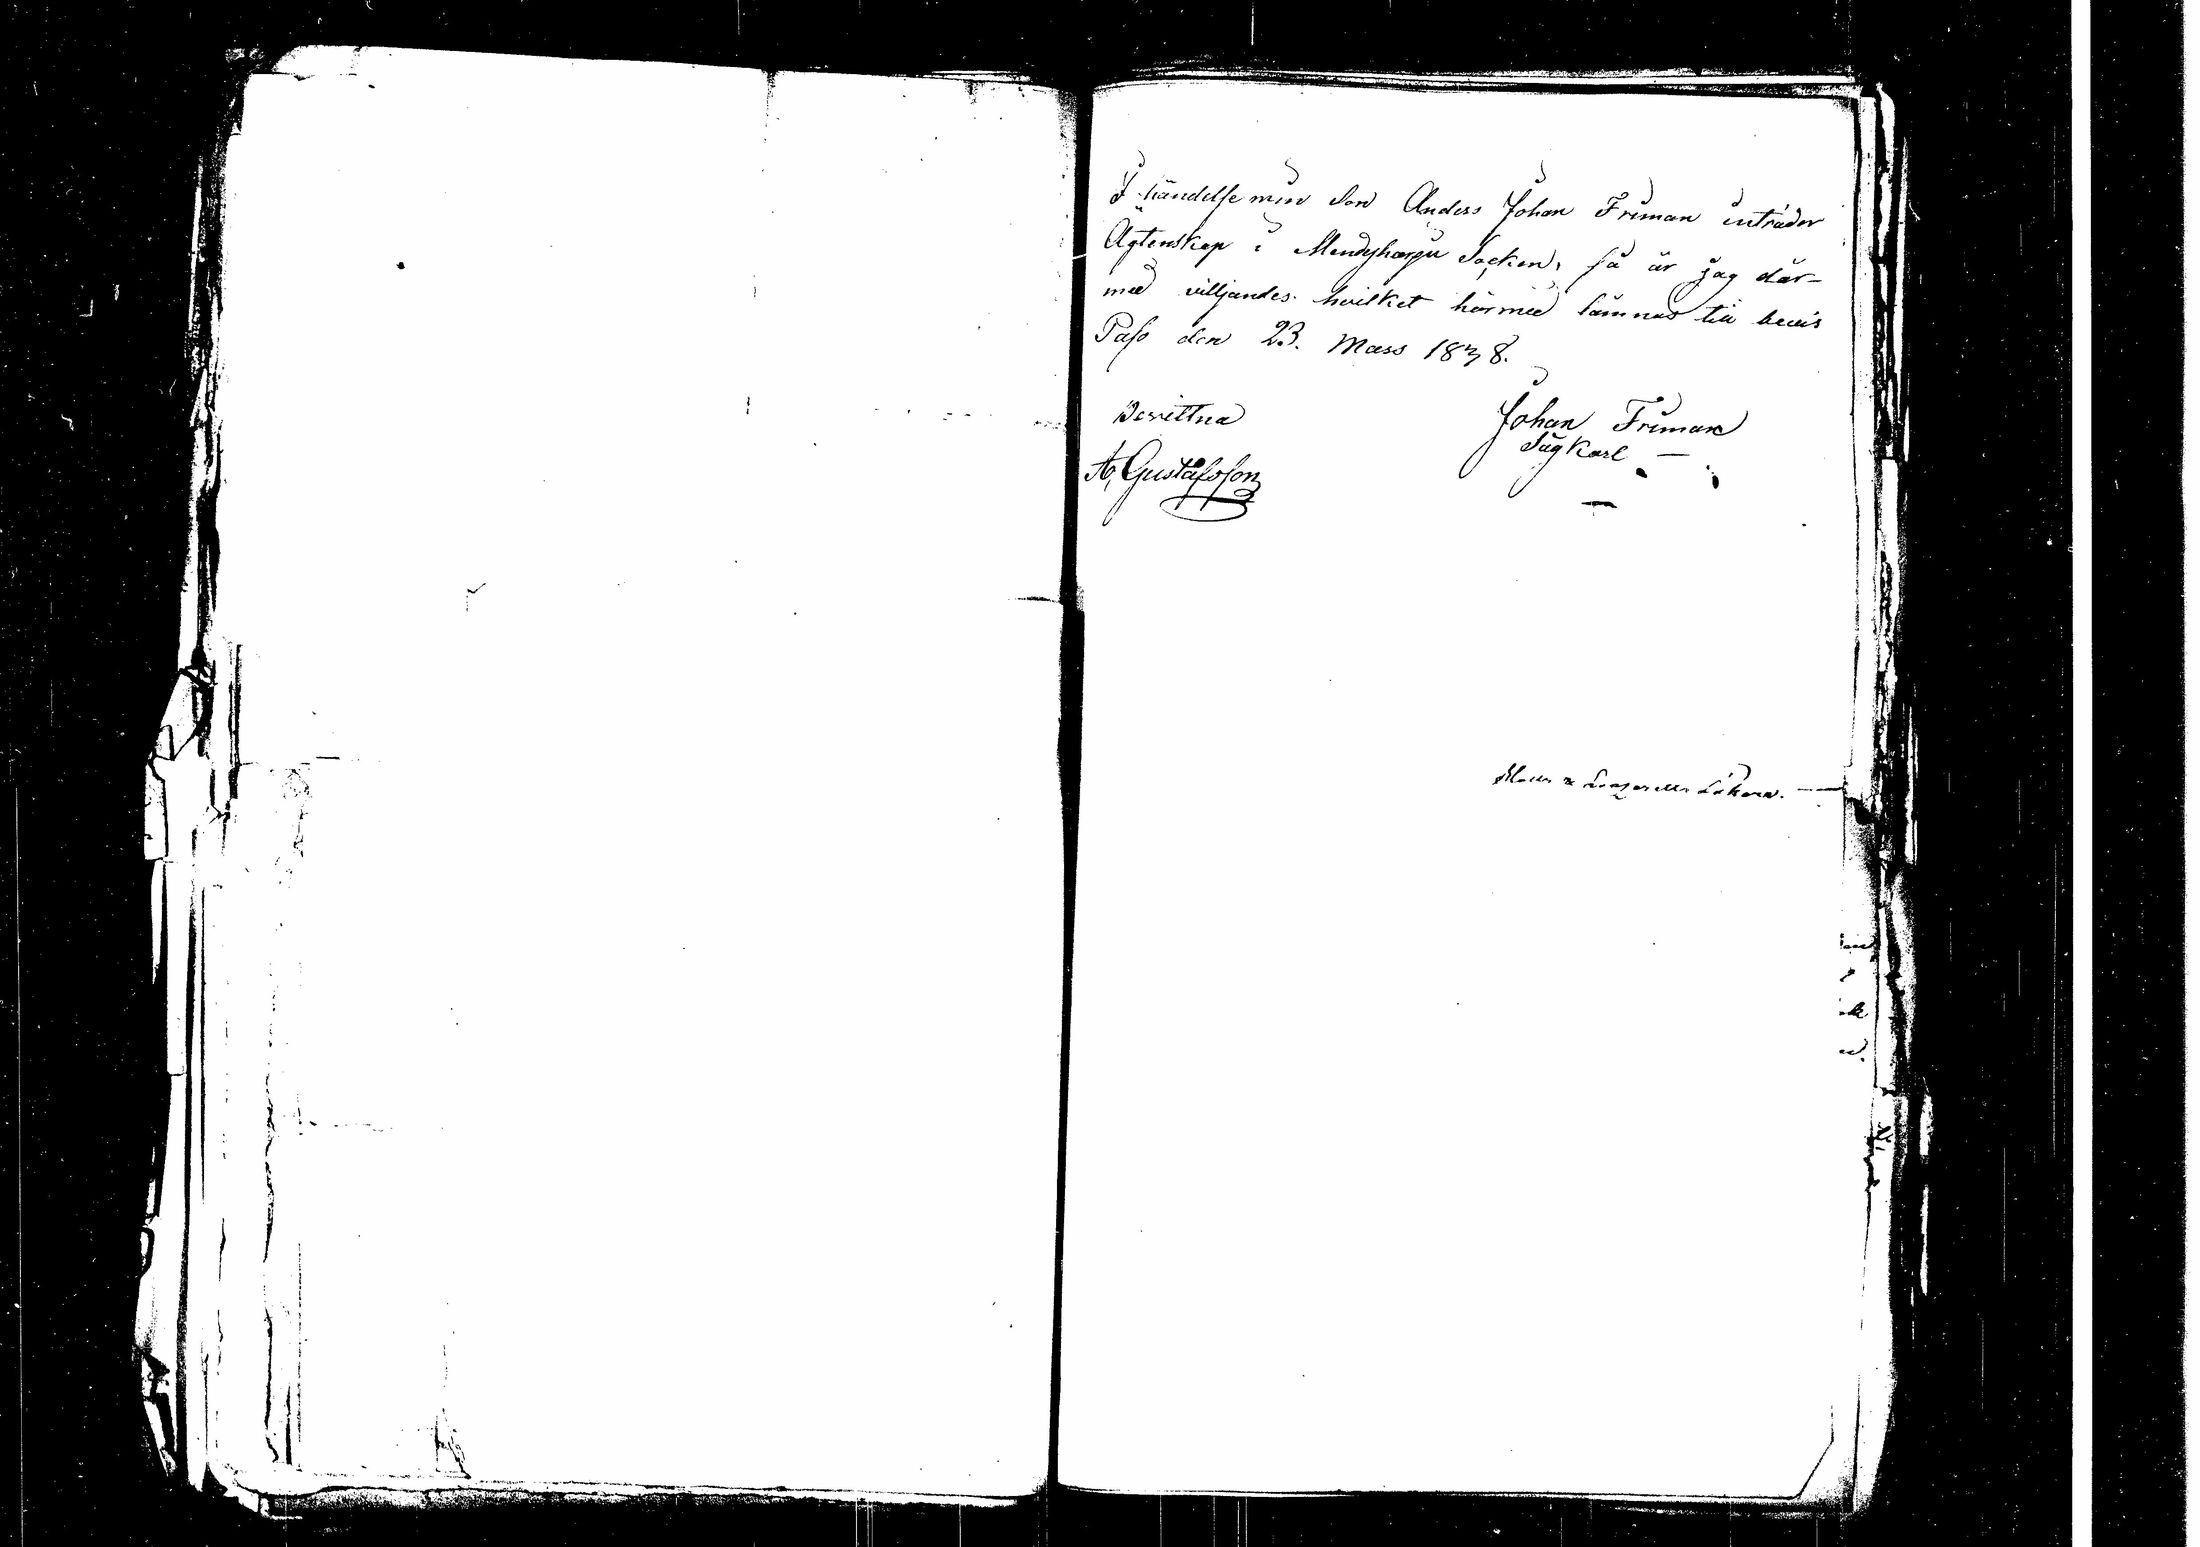 I händelse min Son Anders Johan Friman inträder
Ägtenskap i Mendyharju Socken, så är jag där-
med villjandes. hvilket härmed lämnas till bevis
Paso den 23. Mars 1838.
Bevittna
Johan Friman
Sågkarl
A, Gustafsson
Läkare.